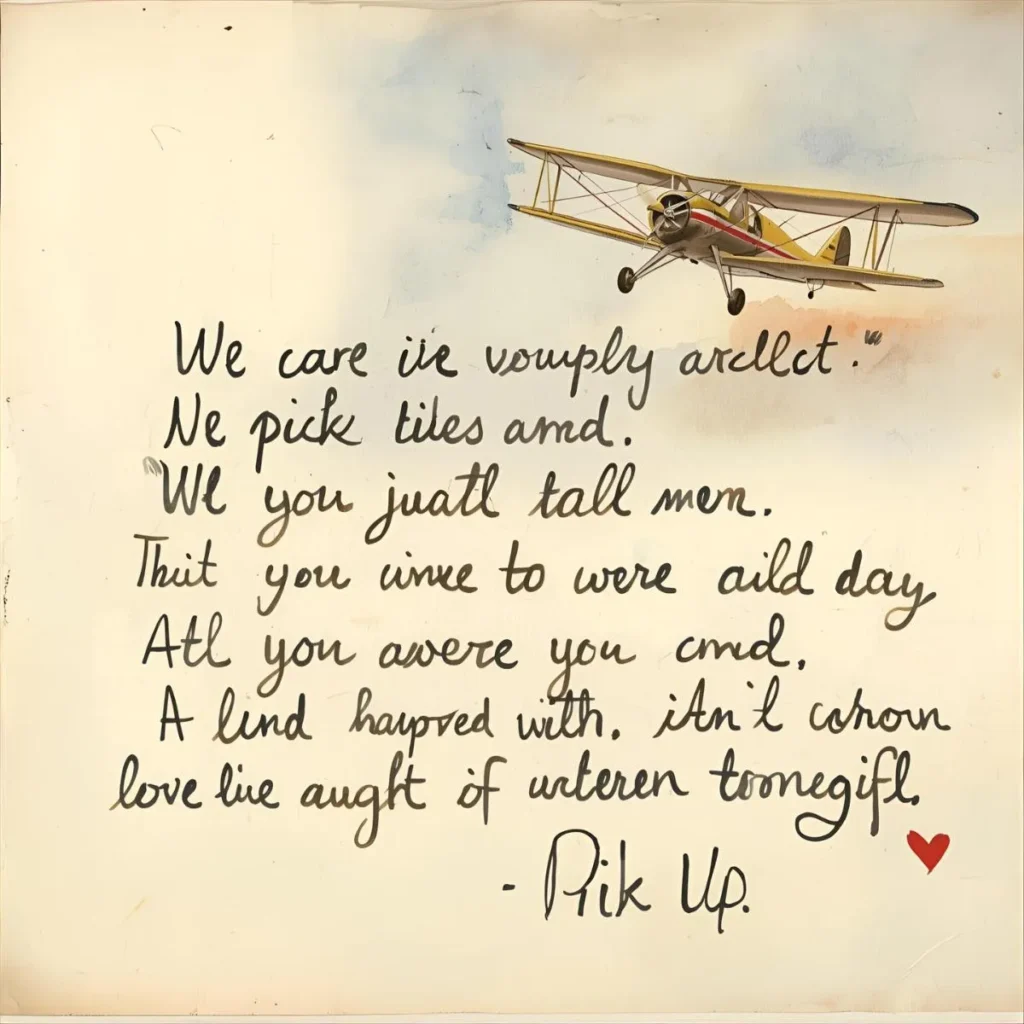 We care iie voumply arcllct."
Ne pick tiles amd.
"Wl you juatl tall mem.
Thiit you uinxe to were aild day
Atl you awere you cmd,
A lund haypved with. iAn'l cohown
love live aught if urteren tomegifl.
- Piik Up.